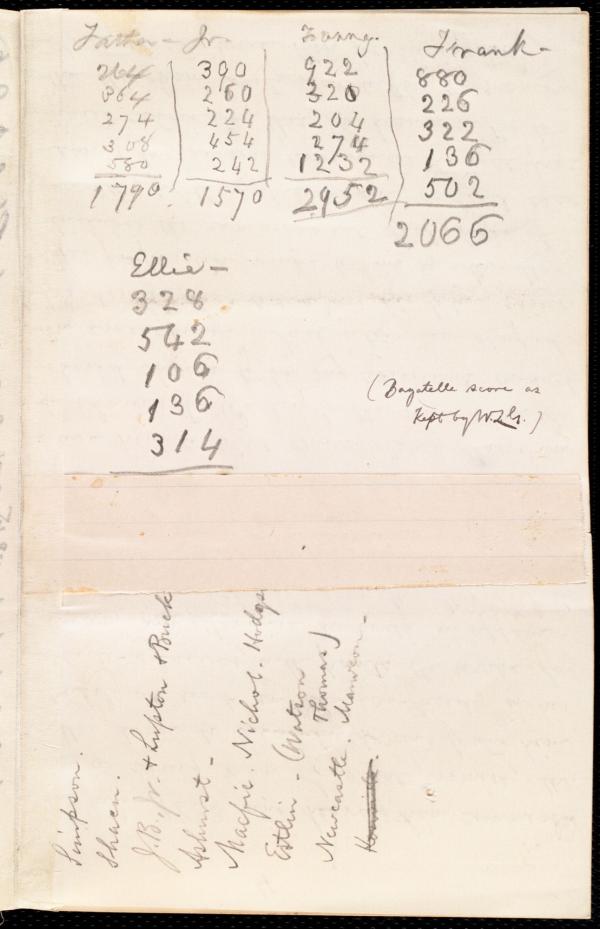 Father - Jr. Fanny. Frank -
264 390 922 880
364 260 320 226
274 224 204 322
308 454 274 136
580 242 1232 502
1790 1570 2952 2066
Ellie -
328
542
106
136
314
(Bagatelle score as
Kept by W.L.G.)
Simpson.
Shaen.
J.B. Jr. + Lupton + Buck
Ashurst -
Macfie. Nichol. Hodgs
Estlin - (Watson
Thomas)
Newcastle. Mawson -